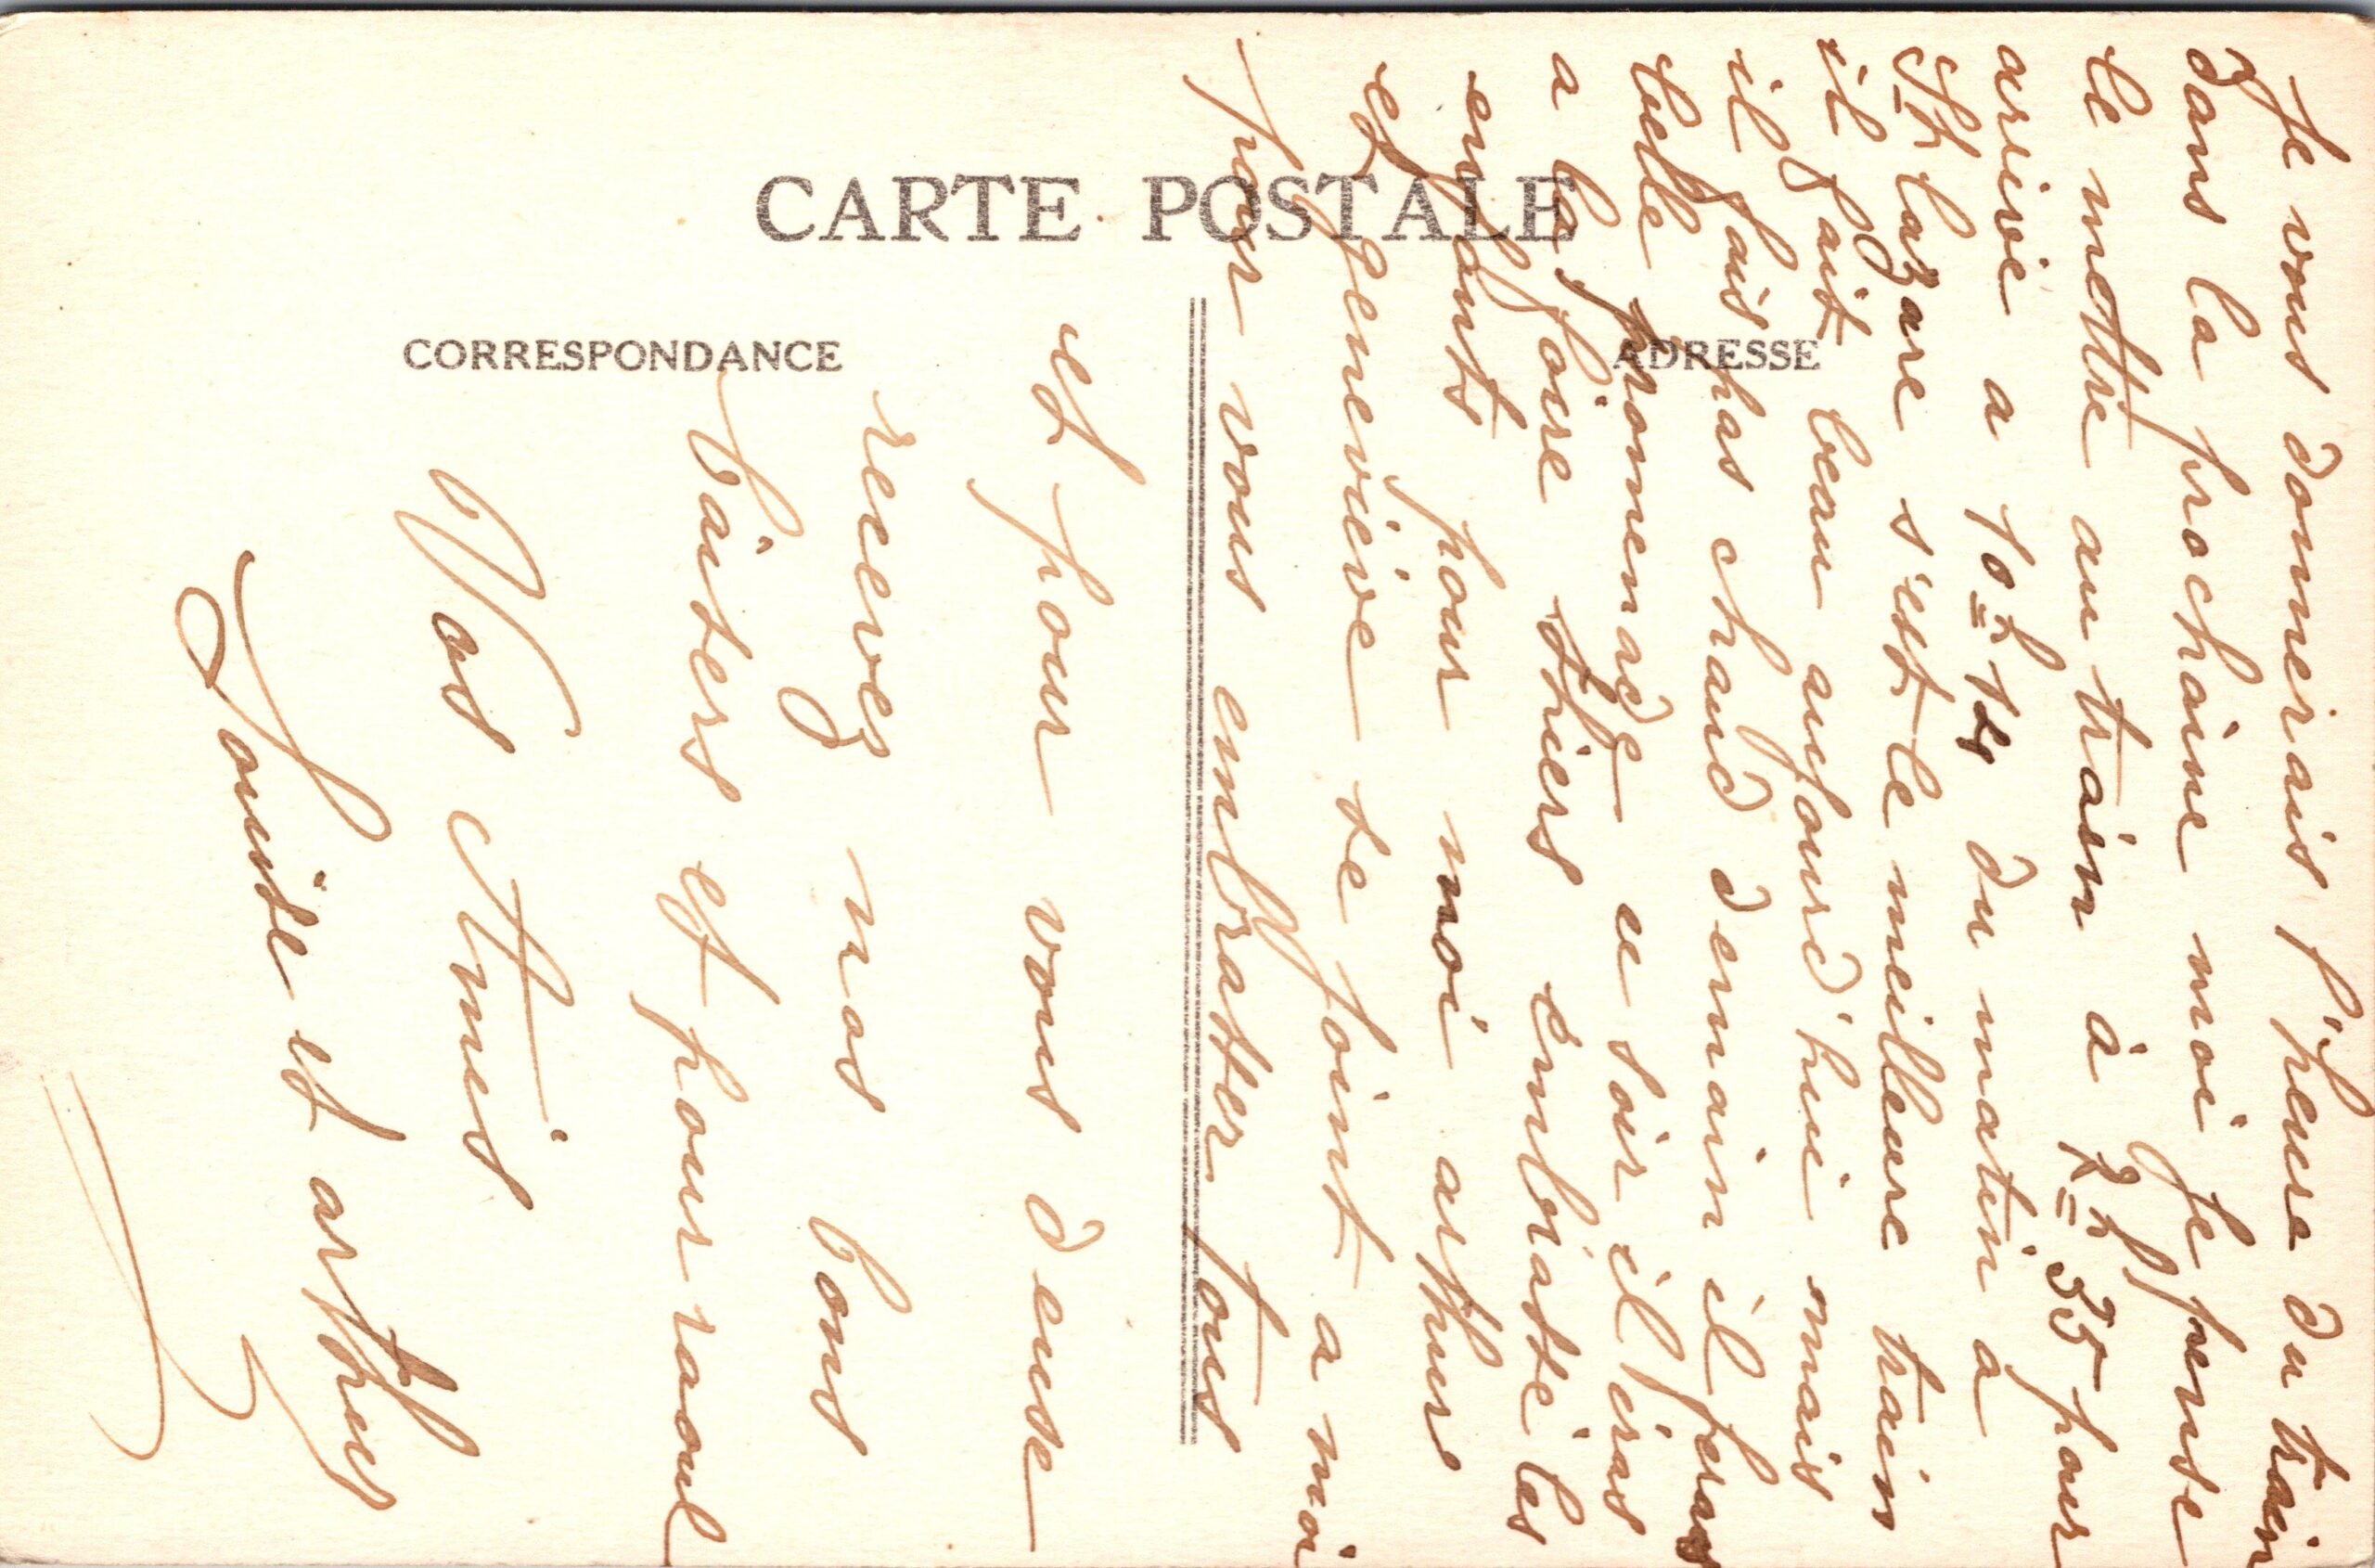 CARTE POSTALE
CORRESPONDANCE
ADRESSE
Je vous donnerais l'heure du train
dans la prochaine moi je pense
le mettre au train à 7h 35 pour
arrivé a 10h 14 du matin a
St lazare s'est le meilleure train
il fait beau aujourd'hui mais
il fais pas chaud demain il feras
belle promenade ce soir il iras
a la foire thiers embrasse les
enfants pour moi arthur
et geneviève se joint a moi
par vous embrasser tous
et pour vous deux
recevez nos bons
baisers et pour raoul
Vos Amis
Louise et arthur